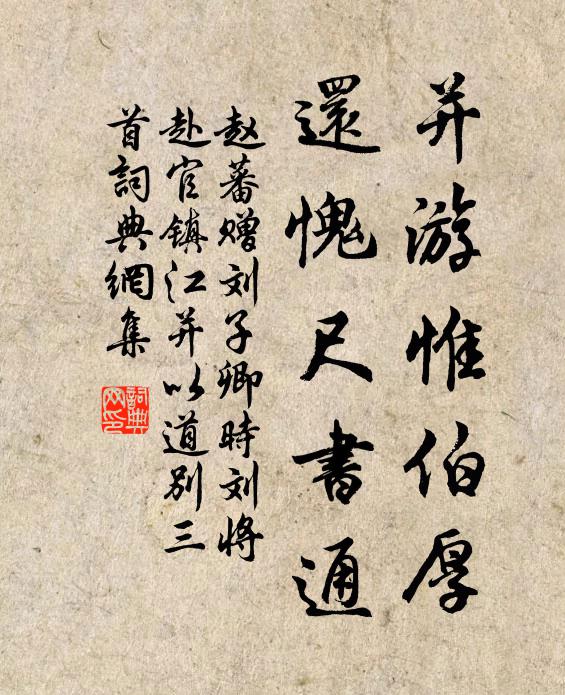 并游惟伯厚
還愧尺書通
赵蕃赠刘子卿時刘将
赴官镇江并以道别三
首詞典網集
詞典
网印